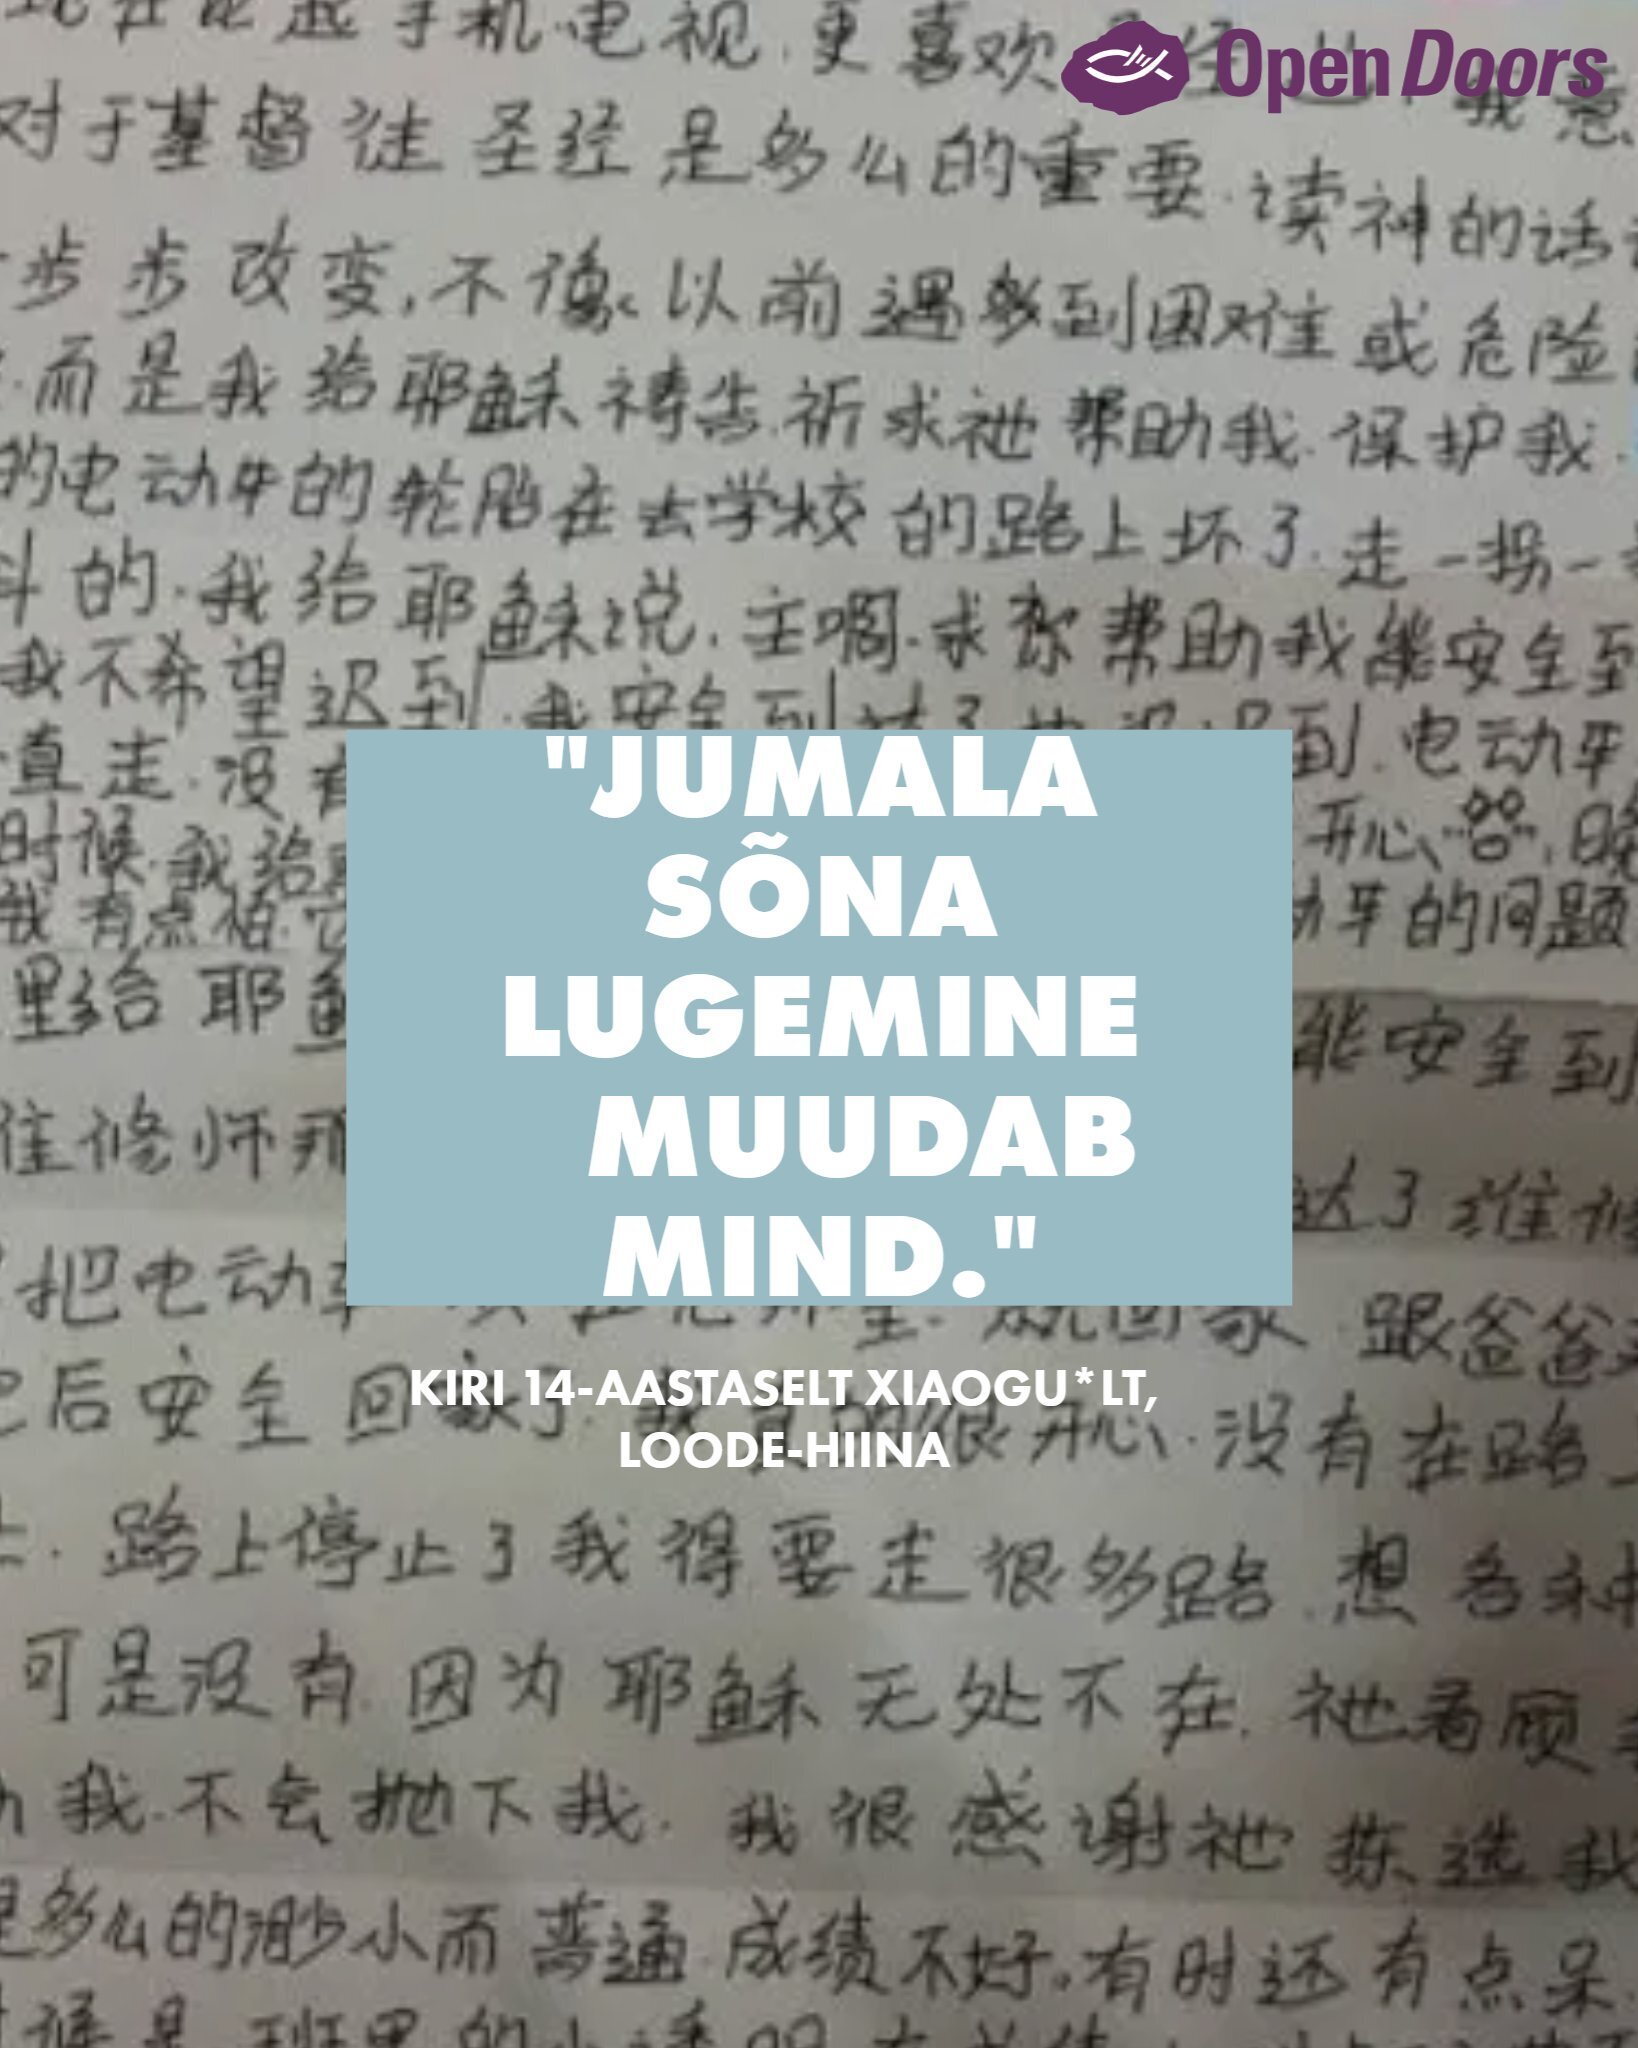 Open Doors
手机.电视.更喜欢
对于基督徒圣经是多么的重要.读神的话
步步改变,不像以前遇到困难或危险
而是我给耶稣祷告.祈求祂帮助我.保护我.
的电动车的轮胎在去学校的路上坏了.走一拐一
的.我给耶稣说.主啊.求祢帮助我能安全到
我不希望迟到.我安全到达了也没迟到.电动车
直走.没有
"JUMALA
SÕNA
LUGEMINE
MUUDAB
MIND."
时候.我给 开心
我有点怕. 动车的问题
里给耶稣 能安全到
修师那 达了维修
把电动车 就回家.跟爸爸
后安全回家了.我真的很开心.没有在路
KIRI 14-AASTASELT XIAOGU*LT,
LOODE-HIINA
路上停止了我得要走很多路.想各种
可是没有.因为耶稣无处不在.祂看顾
我.不会抛下我.我很感谢祂拣选我
多么的渺小而普通.成绩不好。有时还有点呆